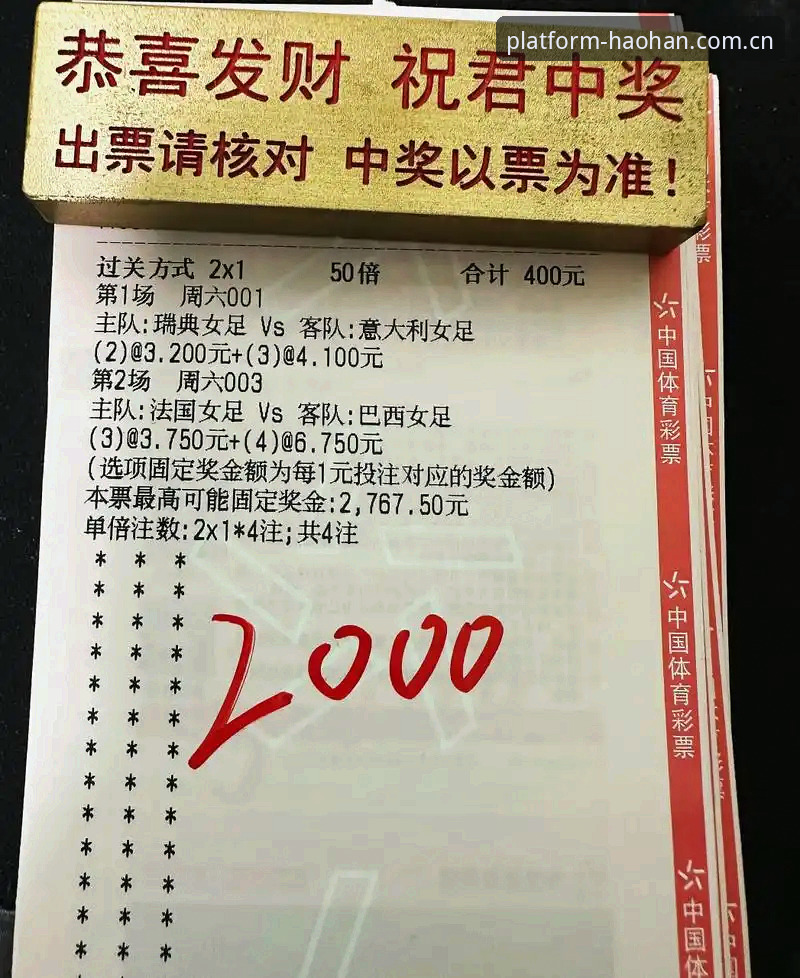 platform-haohan.com.cn
恭喜发财 祝君中奖
出票请核对 中奖以票为准!
过关方式 2x1 50倍 合计 400元
第1场 周六001
主队:瑞典女足 Vs 客队:意大利女足
(2)@3.200元+(3)@4.100元
第2场 周六003
主队:法国女足 Vs 客队:巴西女足
(3)@3.750元+(4)@6.750元
(选项固定奖金额为每1元投注对应的奖金额)
本票最高可能固定奖金:2,767.50元
单倍注数:2x1*4注;共4注
* * *
* * *
* * *
* * *
* * *
* * *
* * *
* * *
* * *
* * *
* * *
* * *
* * *
2000
中国体育彩票
中国体育彩票
中国体
彩票